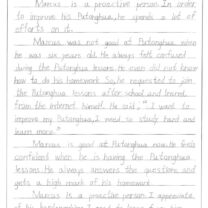 Marcus is a proactive person. In order
to improve his Putonghua, he spends a lot of
efforts on it.
Marcus was not good at Putonghua when
he was six years old. He always felt confused
during the Putonghua lessons. He even did not know
how to do his homework. So, he requested to join
the Putonghua lessons after school and learned
from the Internet himself. He said, "I want to
improve my Putonghua, I need to study hard and
learn more."
Marcus is good at Putonghua now. He feels
confident when he is having the Putonghua
lessons. He always answers the questions and
gets a high mark of his homework.
Marcus is a proactive person. I appreciate